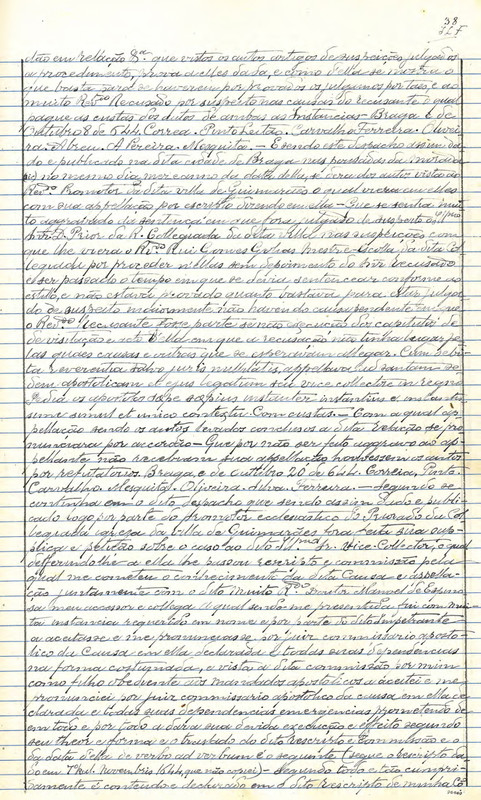 38
dão em rellação Sª. que vistos os autos artigos de suspeições, julgados
a procedimento, prova a elles dada, e como d'ella se mostra o
que basta para se haverem por provados os julgamos por taes, e ao
muito Rev.do Recusado por suspeito nas causas do recusante o qual
pague as custas dos autos de ambas as instancias. Braga e de
Outubro 8 de 644. Correa. Pinto Leitão. Carvalho Ferreira. Olivei-
ra. Abreu. A Pereira. Mesquita. — E sendo este despacho assim da-
do e publicado na dita cidade de Braga nas pousadas da morada
no mesmo dia, mez e anno da data della, se deu dos autos vista ao
Rev.do Promotor da dita villa de Guimarães o qual viera em elles
com sua appellação por escripto dizendo em ella — Que se senha mui-
to aggravado da sentença em que fora julgado de suspeito o
D. Prior da R. Collegiada da dita Villa nas suspeições com
que lhe viera o Rev.do Rui Gomes Golias Mestre-Escola da dita Col-
legiada por proceder n'ellas sem depoimento do Recusado
e ser passado o tempo em que se devia sentencear conforme ao
estillo, e não estava provado quanto bastava para estar julga-
do de suspeito maiormente não havendo causa pendente em que
o Rev.do Recusante fosse parte se não execução dos capitulos de
de visitação e acto d'ella em que a recusação não tinha lugar pe-
las quaes causas e outras que se esperavam allegar. Cum debi-
ta reverentia salvo jure nullitatis, appellava ad santam se-
dem apostolicam et ejus legatum seu vice collectore in regno
Pedia os apostolos sæpe sæpius instanter instantius e instantis-
sime simul et unico contextu Com custas — Com a qual ap-
pellação sendo os autos levados conclusos a dita Relação se pro-
nunciara por accordão — Que por não ser feito aggravo ao ap-
pellante não recebiam sua appellação houvessem os autos
por refutatorios. Braga, e de Outubro 20 de 644. Correia, Pinto.
Carvalho Mesquita. Oliveira. Silva. Ferreira. — Segundo se
continha em o dito despacho que sendo assim dado e publi-
cado logo por parte do promotor ecclesiastico do Priorado da Col-
legiada igreja da villa de Guimarães fora feita sua sup-
plica e petição sobre o caso ao dito Ill.mo Sr. Vice-Collector, o qual
deferindo-lhe a ella lhe passou rescripto e commissão pela
qual me cometeu o conhecimento da dita Causa e appella-
ção juntamente com o dito muito R.do Doutor Manoel de Espino-
sa meu acessor e collega A qual sendo-me presentada fui com mui-
ta instancia requerido em nome e por parte do dito impetrante
a aceitasse e me pronunciasse por juiz commissario aposto-
lico da Causa em ella declarada e todas suas dependencias
na forma costumada, e vista a dita commissão por mim
como filho obediente aos mandados apostolicos a aceitei e me
pronunciei por juiz commissario apostolico da causa em ella de-
clarada e todas suas dependencias emergencias prometendo de
em todo e por todo a dar a sua devida execução e effeito segundo
seu theor e forma e o traslado do dito Rescripto e Commissão e o
da data della de verbo ad verbum é o seguinte (segue o rescripto da-
do em 7 Kal. Novembris 1644, que não copiei) — Segundo todo e tão cumpri-
damente é contendo e declarado em o dito rescripto de minha Co-